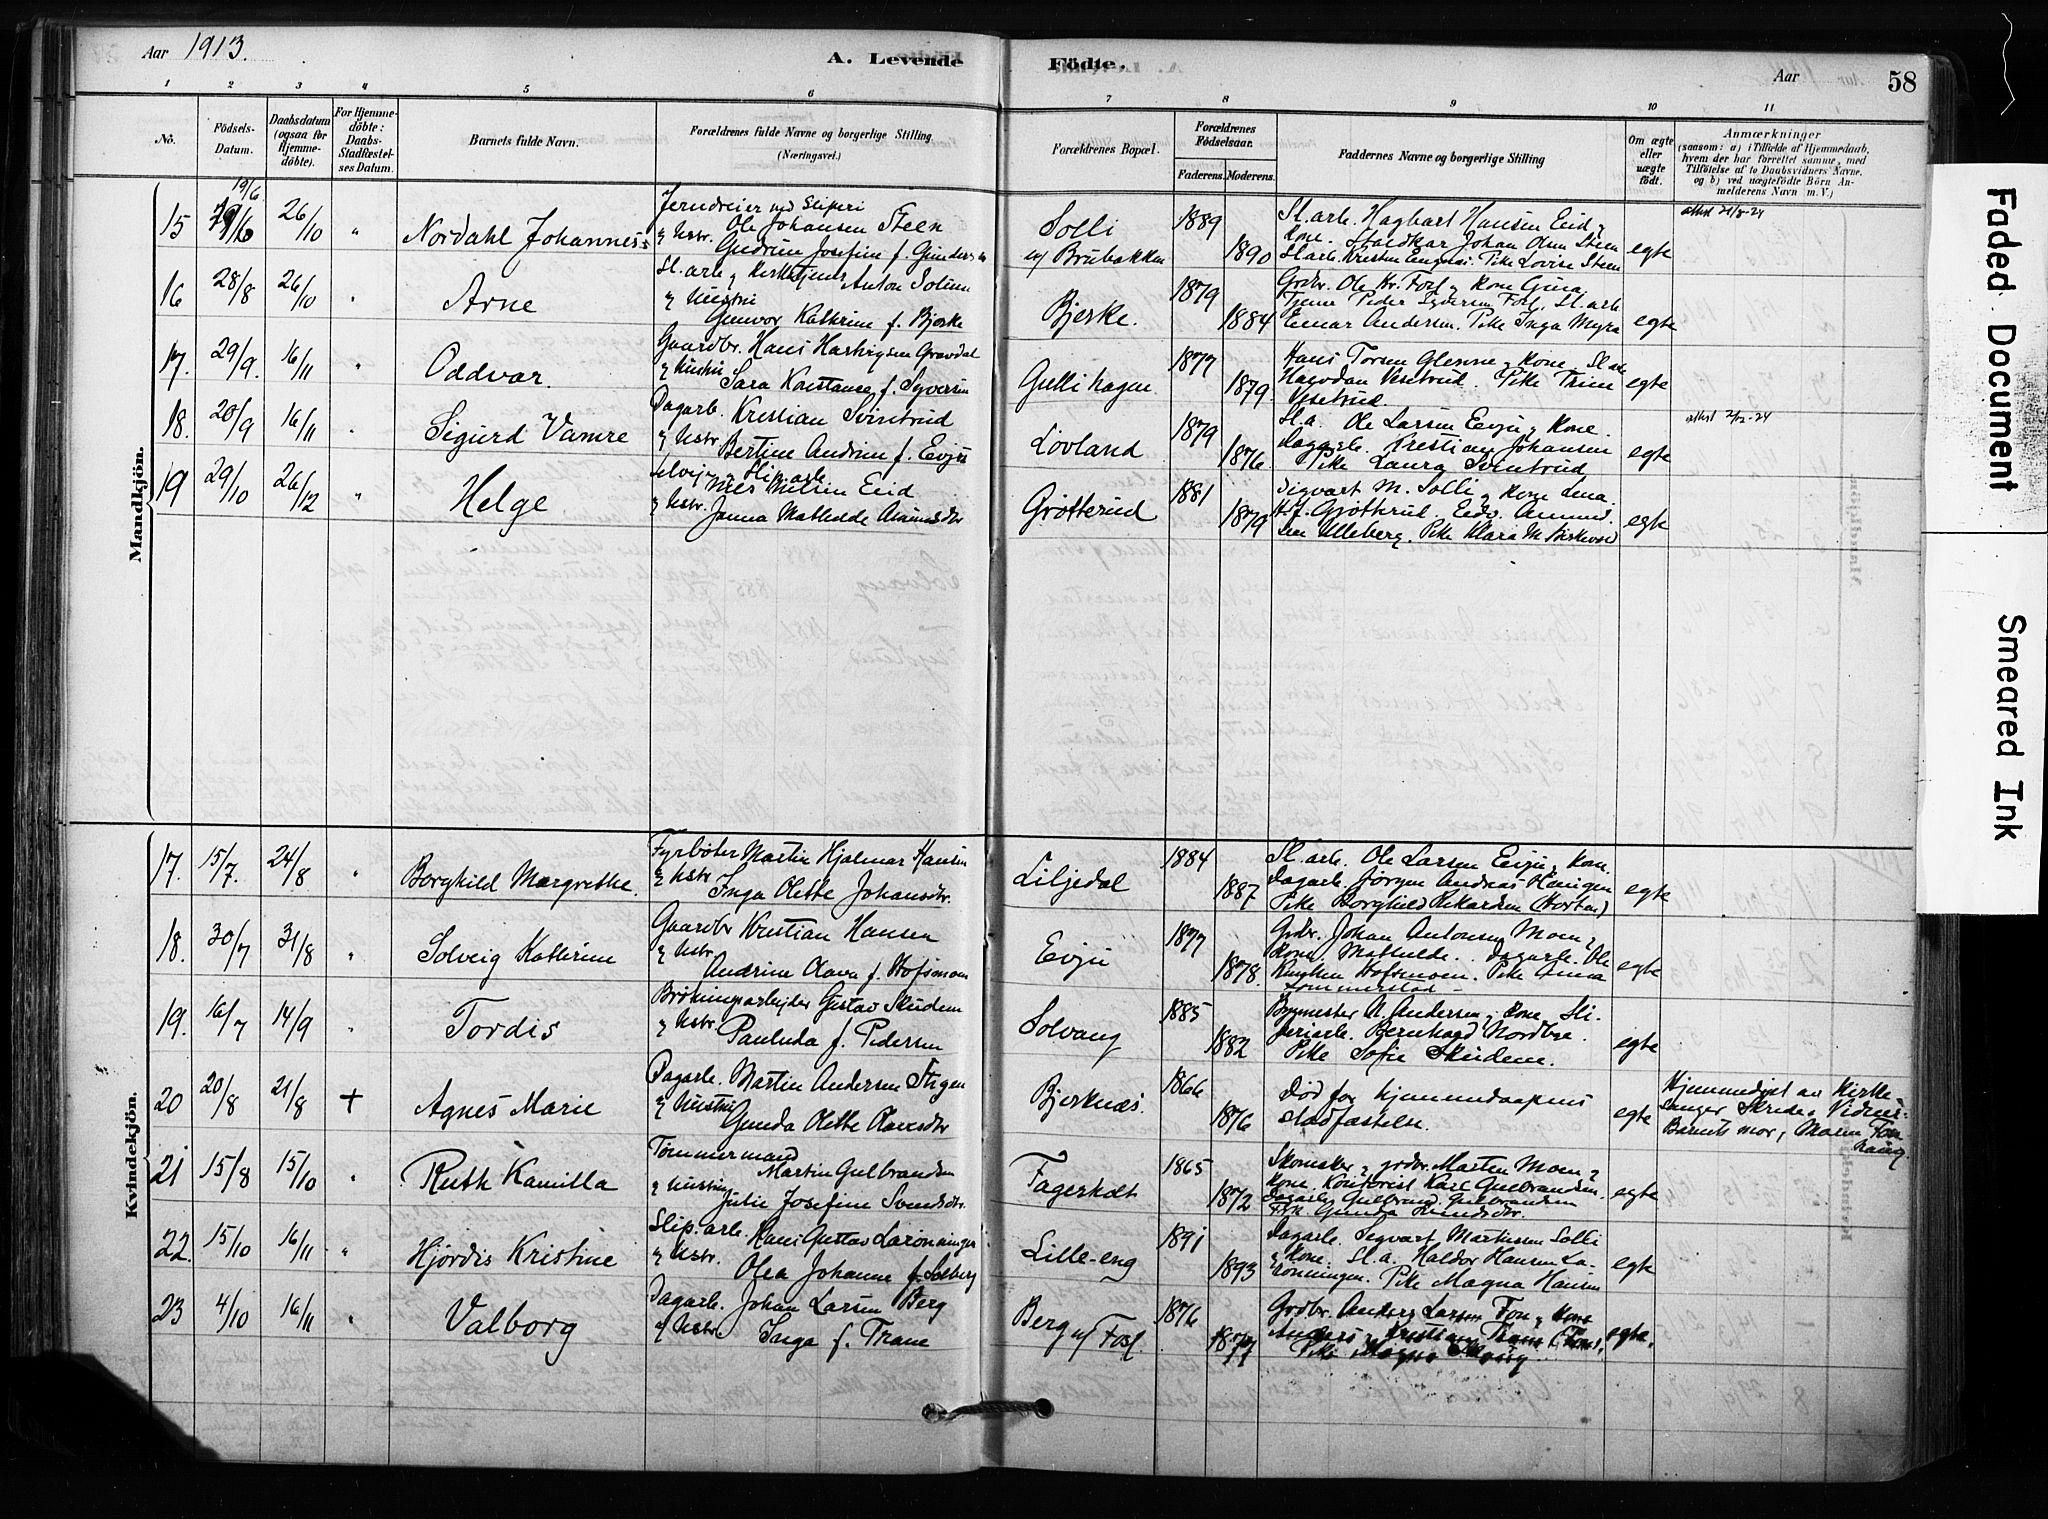 Aar 1913.
A. Levende Födte.
Aar
58
1 2 3 4 5 6 7 8 9 10 11
No.
Födsels-Datum.
Daabsdatum (ogsaa for Hjemme-döbte).
For Hjemme-döbte: Daabs-Stadfæstel-ses Datum.
Barnets fulde Navn.
Forældrenes fulde Navne og borgerlige Stilling. (Næringsvei.)
Forældrenes Bopæl.
Forældrenes Födselsaar.
Faderens. Moderens.
Faddernes Navne og borgerlige Stilling
Om ægte eller uægte födt.
Anmærkninger
(saasom: a) i Tilfælde af Hjemmedaab, hvem der har forrettet samme, med Tilföielse af to Daabsvidners Navne, og b) ved uægtefödte Börn An-melderens Navn m. V.)
Mandkjön.
15 19/6 26/10 " Nordahl Johannes
Jerndreier ved Sliperi
Ole Johansen Steen
& Hstr. Gudrun Josefine f. Gundersen
Solli u/ Brubakken 1889 1890
Sl.arb. Hagbart Hansen Eid &
Kone. Johan Olsen Steen
Sl.arb. Kristen Engnæs. Pike Lovise Steen
egte
16 28/8 26/10 " Arne
Sl.arb. & Kirketjener Anton Solum
& Hustru
Gunvor Kathrine f. Bjerke
Bjerke. 1879 1884
Grdbr. Ole Kr. Fosf & Kone Gina
Tjener Peder Syversen Fosf. Sl.arb.
Einar Andersen. Pike Inga Myra
egte
17. 29/9. 16/11 " Oddvar.
Gaardbr. Hans Hartvigsen Gravdal
& Hustru Sara Konstanse f. Syversen
Gulli hagen. 1877 1879
Hans Torsen Glenne & Kone. Sl.arb
Halvdan Ysetrud. Pike Trine
Ysetrud.
egte
18. 20/9 16/11 " Sigurd Vamre
Dagarb. Kristian Svintrud
& Hstr. Bertine Andrine f. Evju
Lövland 1879 1876
Sl.a. Ole Larsen Evju & Kone.
Dagarb. Kristian Johansen
Pike Laura Svintrud
egte
19 29/10 26/12 " Helge
Selveier & Slip.arb.
Nils Nilsen Eid
& Hstr. Janna Mathilde
Grötterud 1881 1879
Sigvart M. Solli & Kone Lena.
H.H. Gröttrud. Edv. Amund-
sen Ulleberg. Pike Klara M.
egte
Kvindekjön.
17. 15/7. 24/8 " Borghild Margrethe.
Fyrböter Martin Hjalmar Hansen
& Hstr. Inga Olette Johansdtr.
Liljedal 1884 1887
Sl.arb. Ole Larsen Evju & Kone.
Dagarb. Jörgen Andreas
Pike Borghild Rikardsen (Horten)
egte
18. 30/7 31/8 " Solveig Kathrine
Gaardbr Kristian Hansen
& Hstr.
Andrine Olava f. Hofsmoen
Evju 1877 1878.
Grdbr. Johan Antonsen Moen &
Kone Mathilde. Dagarb. Ole
Knutsen Hofsmoen. Pike Anna
Sommerstad
egte
19. 16/7 14/9 " Tordis
Gustav Skudem
& Hstr. Paulida f. Pedersen
Solvang 1885 1882
A. Andersen & Kone. Sli-
periarb. Bernhard Nordbye.
Pike Sofie Skudem.
egte
20 20/8 21/8 + Agnes Marie
Dagarb. Martin Andersen Stigen
& Hustru
Gunda Olette Olavesdtr
Bjerknæs. 1866 1876
Död for hjemmedaapens
stadfæstelse.
egte
Hjemmedöpt av Kirke-
sanger Skrede. Vidner:
Barnets mor, Maren Fon
21 15/8 15/10 " Ruth Kamilla
Tömmermand
Martin Gulbrandsen
& Hustru Julie Josefine Svendsdtr.
Fagerholt 1865 1872
Skomaker & grdbr. Marten Moen &
Kone. Kontorist Karl Gulbrandsen.
Dagarb. Gulbrand Gulbrandsen
Pike Gunda Knudsdtr.
egte
22. 15/10 16/11 " Hjördis Kristine
Slip.arb. Hans Gustav Larönningen
& Hstr.
Olea Johanne f. Solberg
Lille-eng 1891 1893
Dagarb. Segvart Martinsen Solli
& Kone. Sl.a. Haldor Hansen La-
rönningen. Pike Magna Hansen
egte
23 4/10 16/11 " Valborg
Dagarb. Johan Larsen Berg
& Hstr. Inga f. Trane
Berg u/ Fosf. 1876 1877
Grdbr. Anders Larsen Fon & Kone
Anders & Kristian Trane (Fon).
Pike Magna
egte.
Faded Document
Smeared Ink